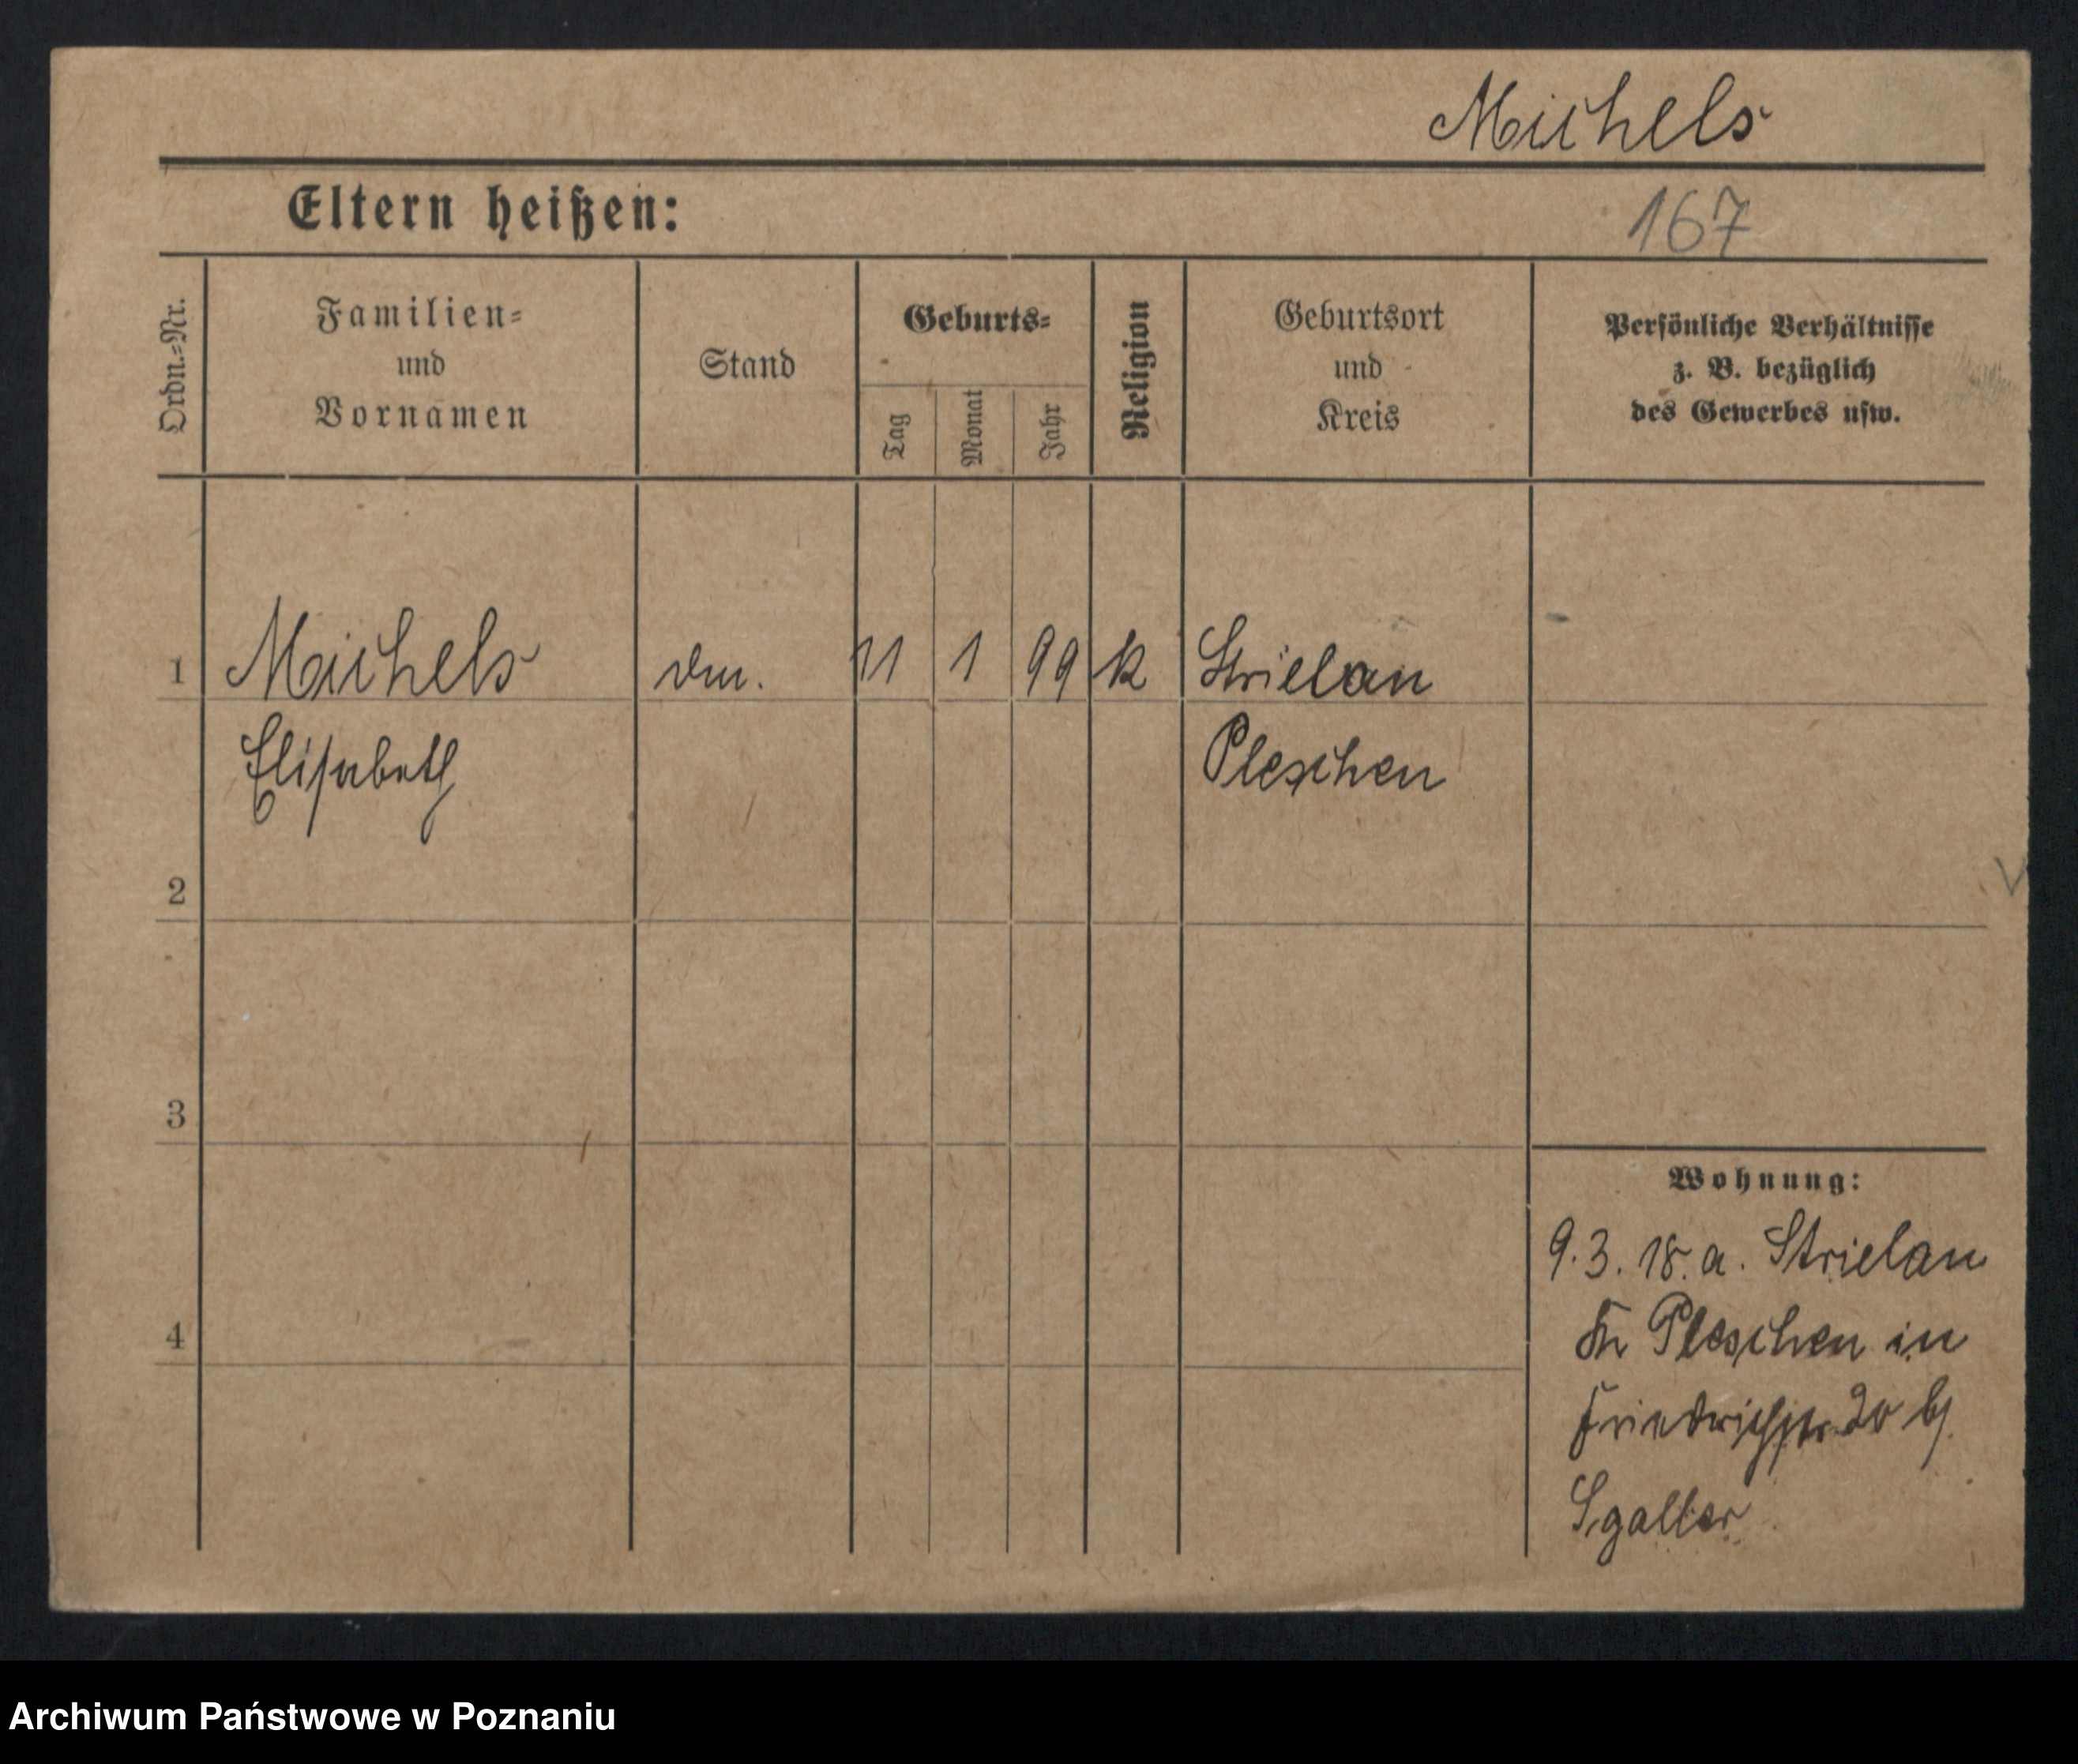 Michels
Eltern heißen:
167
Ordn.-Nr.
Familien-
und
Vornamen
Stand
Geburts-
Tag
Monat
Jahr
Religion
Geburtsort
und
Kreis
Persönliche Verhältnisse
z. B. bezüglich
des Gewerbes usw.
1
Michels
11
1
99
k
Strielau
Elisabeth
Pleschen
2
3
4
Wohnung:
9.3.18. a. Strielau
Kr Pleschen in
Friedrichstr 20 bj.
Sgaller
Archiwum Państwowe w Poznaniu